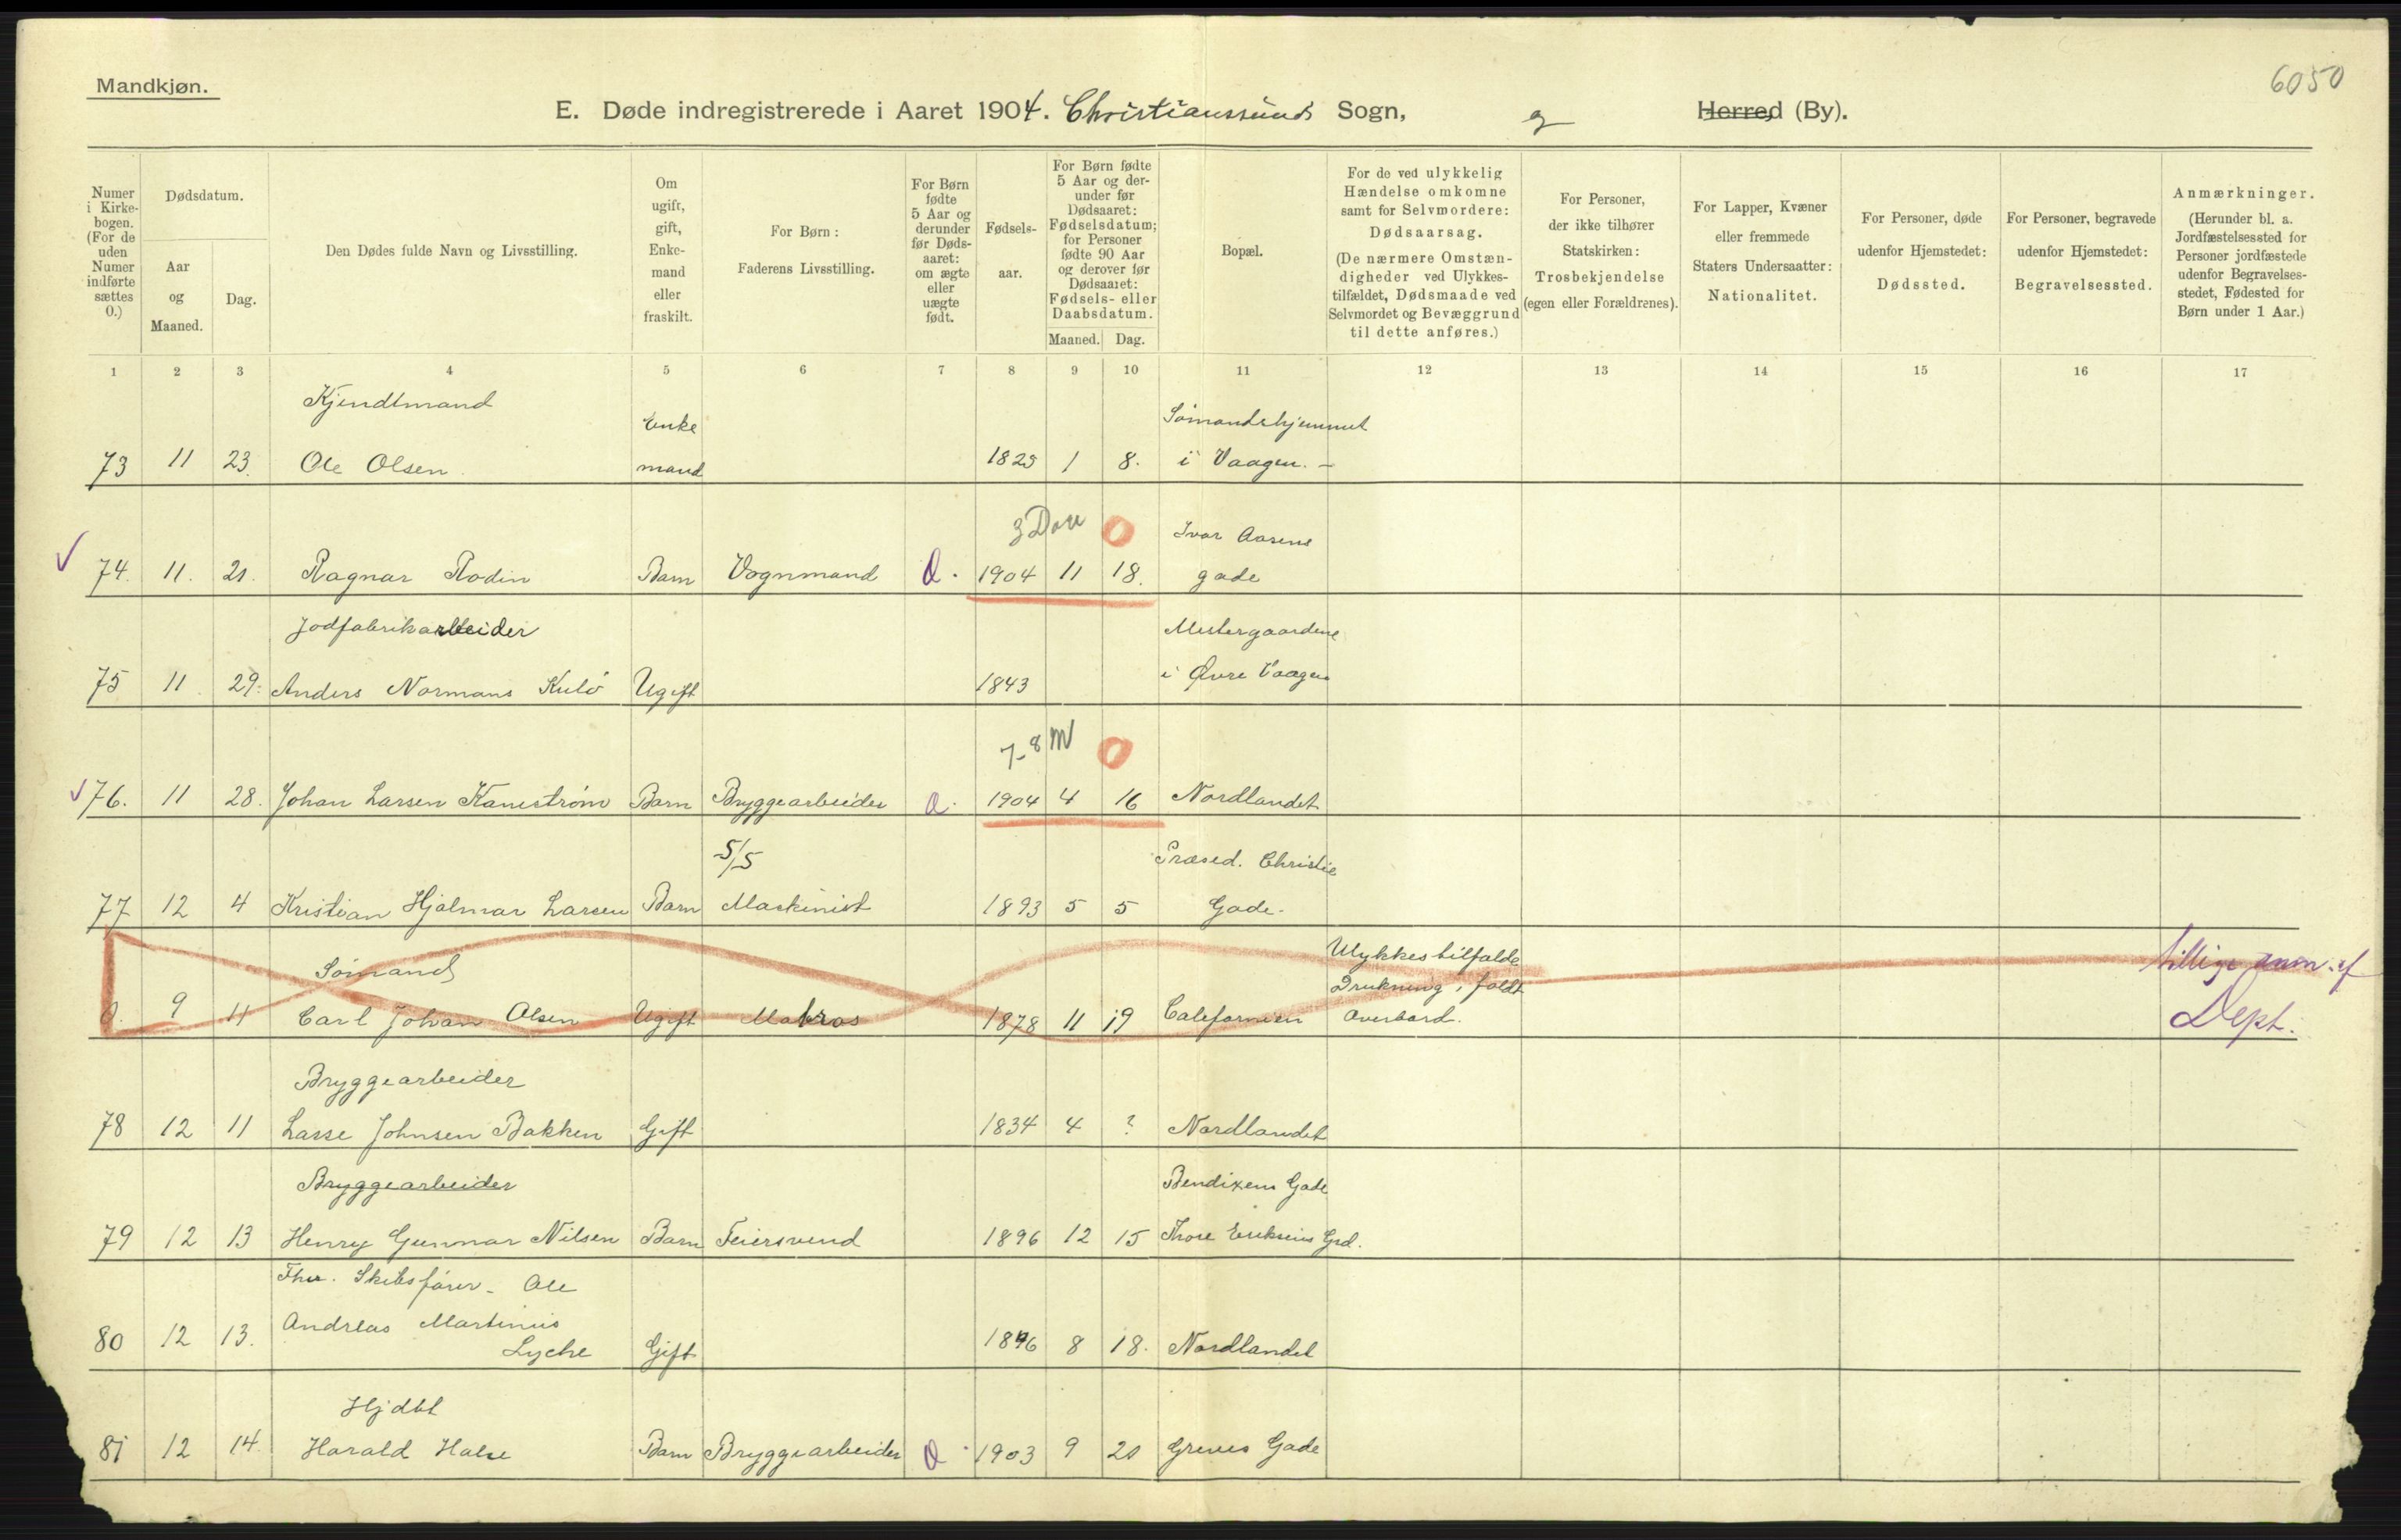 Mandkjøn.
6050
E. Døde indregistrerede i Aaret 1904. Christianssunds Sogn, Herred (By).
Numer i Kirke- bogen. (For de uden Numer indførte sættes 0.)
Dødsdatum.
Aar og Maaned.
Dag.
Den Dødes fulde Navn og Livsstilling.
Om ugift, gift, Enke- mand eller fraskilt.
For Børn: Faderens Livsstilling.
For Børn fødte 5 Aar og derunder før Døds- aaret: om ægte eller uægte født.
Fødsels- aar.
For Børn fødte 5 Aar og der- under før Dødsaaret: Fødselsdatum; for Personer fødte 90 Aar og derover før Dødsaaret: Fødsels- eller Daabsdatum.
Maaned. Dag.
Bopæl.
For de ved ulykkelig Hændelse omkomne samt for Selvmordere: Dødsaarsag. (De nærmere Omstæn- digheder ved Ulykkes- tilfældet, Dødsmaade ved Selvmordet og Bevæggrund til dette anføres.)
For Personer, der ikke tilhører Statskirken: Trosbekjendelse (egen eller Forældrenes).
For Lapper, Kvæner eller fremmede Staters Undersaatter: Nationalitet.
For Personer, døde udenfor Hjemstedet: Dødssted.
For Personer, begravede udenfor Hjemstedet: Begravelsessted.
Anmærkninger. (Herunder bl. a. Jordfæstelsessted for Personer jordfæstede udenfor Begravelses- stedet, Fødested for Børn under 1 Aar.)
1 2 3 4 5 6 7 8 9 10 11 12 13 14 15 16 17
Kjendtmand Enke Sømandshjemmet
73 11 23. Ole Olsen. mand 1825 1 8. i Vaagen. -
3 Dage 0 Ivar Aasens
74. 11. 21. Ragnar Rodin Barn Vognmand 1904 11 18. gade
Jodfabrikarbeider Mestergaardene
75 11. 29. Anders Normans Kulö Ugift 1843 i Øvre Vaagen
7-8 M 0
76. 11 28. Johan Larsen Kanestrøm Barn Bryggearbeider 1904 4 16 Nordlandet
S/S Præsid. Christie
77 12 4 Kristian Hjalmar Larsen Barn Maskinist 1893 5 5 Gade.
Sømand Ulykkestilfælde tillige anm. af
Drukning, faldt
0. 9 11 Carl Johan Olsen Ugift Matros 1878 11 19 Calefornien Overbord. Dept.
Bryggearbeider
78 12 11 Lasse Johnsen Bakken Gift 1834 4 ? Nordlandet
Bryggearbeider Bendixens Gade
79 12 13 Henry Gunnar Nilsen Barn Feiersvend 1896 12 15 Thore Eriksens Grd.
Fhv. Skibsfører - Ole
Andreas Martinius
80 12 13. Lyche Gift 8 18. Nordlandet
Hjdbt
81 12 14. Harald Halse Barn Bryggearbeider 1903 9 20 Greves Gade